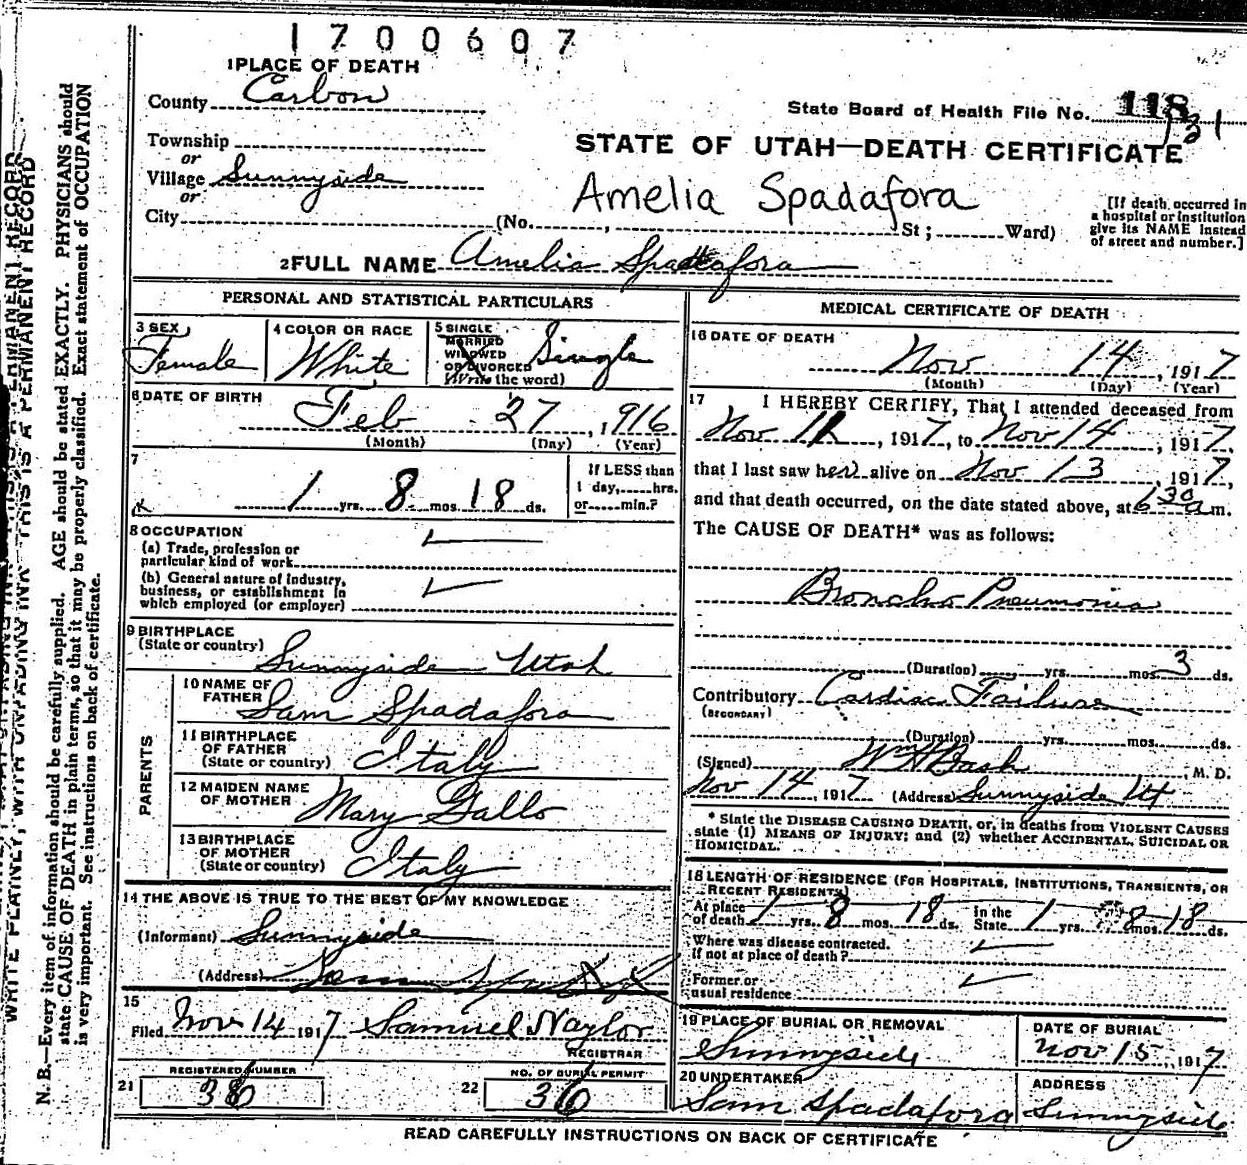 1700607
1 PLACE OF DEATH
County Carbon
Township
or
Village Sunnyside
or
City (No. , St; Ward)
State Board of Health File No. 118
131
STATE OF UTAH—DEATH CERTIFICATE
Amelia Spadafora
[If death occurred in
a hospital or institution
give its NAME instead
of street and number.]
2 FULL NAME Amelia Spadafora
PERSONAL AND STATISTICAL PARTICULARS
3 SEX
Female
4 COLOR OR RACE
White
5 SINGLE
MARRIED
WIDOWED
OR DIVORCED
(Write the word)
Single
6 DATE OF BIRTH
Feb 27, 1916
(Month) (Day) (Year)
7
1 yrs. 8 mos. 18 ds.
If LESS than
1 day, hrs.
or min.?
8 OCCUPATION
(a) Trade, profession or
particular kind of work
(b) General nature of industry,
business, or establishment in
which employed (or employer)
9 BIRTHPLACE
(State or country)
Sunnyside Utah
PARENTS
10 NAME OF
FATHER
Sam Spadafora
11 BIRTHPLACE
OF FATHER
(State or country)
Italy
12 MAIDEN NAME
OF MOTHER
Mary Gallo
13 BIRTHPLACE
OF MOTHER
(State or country)
Italy
14 THE ABOVE IS TRUE TO THE BEST OF MY KNOWLEDGE
(Informant) Sunnyside
(Address)
15
Filed Nov 14 1917 Samuel Naylor
REGISTRAR
21 REGISTERED NUMBER
36
22 NO. OF BURIAL PERMIT
36
MEDICAL CERTIFICATE OF DEATH
16 DATE OF DEATH
Nov 14, 1917
(Month) (Day) (Year)
17 I HEREBY CERTIFY, That I attended deceased from
Nov 11, 1917, to Nov 14, 1917,
that I last saw her alive on Nov 13, 1917,
and that death occurred, on the date stated above, at 630 a m.
The CAUSE OF DEATH* was as follows:
Broncho Pneumonia
(Duration) yrs. mos. 3 ds.
Contributory Cardiac Failure
(SECONDARY)
(Duration) yrs. mos. ds.
(Signed) Wm H Dash, M. D.
Nov 14, 1917 (Address) Sunnyside Ut
* State the DISEASE CAUSING DEATH, or, in deaths from VIOLENT CAUSES
state (1) MEANS OF INJURY; and (2) whether ACCIDENTAL, SUICIDAL OR
HOMICIDAL.
18 LENGTH OF RESIDENCE (FOR HOSPITALS, INSTITUTIONS, TRANSIENTS, OR
RECENT RESIDENTS)
At place
of death 1 yrs. 8 mos. 18 ds. In the
State 1 yrs. 8 mos. 18 ds.
Where was disease contracted.
If not at place of death?
Former or
usual residence
19 PLACE OF BURIAL OR REMOVAL
Sunnyside
DATE OF BURIAL
Nov 15, 1917
20 UNDERTAKER
Sam Spadafora
ADDRESS
Sunnyside
READ CAREFULLY INSTRUCTIONS ON BACK OF CERTIFICATE
WRITE PLAINLY, WITH UNFADING INK—THIS IS A PERMANENT RECORD
N. B.—Every item of information should be carefully supplied. AGE should be stated EXACTLY. PHYSICIANS should
state CAUSE OF DEATH in plain terms, so that it may be properly classified. Exact statement of OCCUPATION
is very important. See instructions on back of certificate.